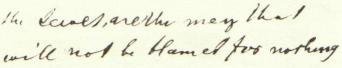 the Leaves, are the men that
will not be blamed for nothing